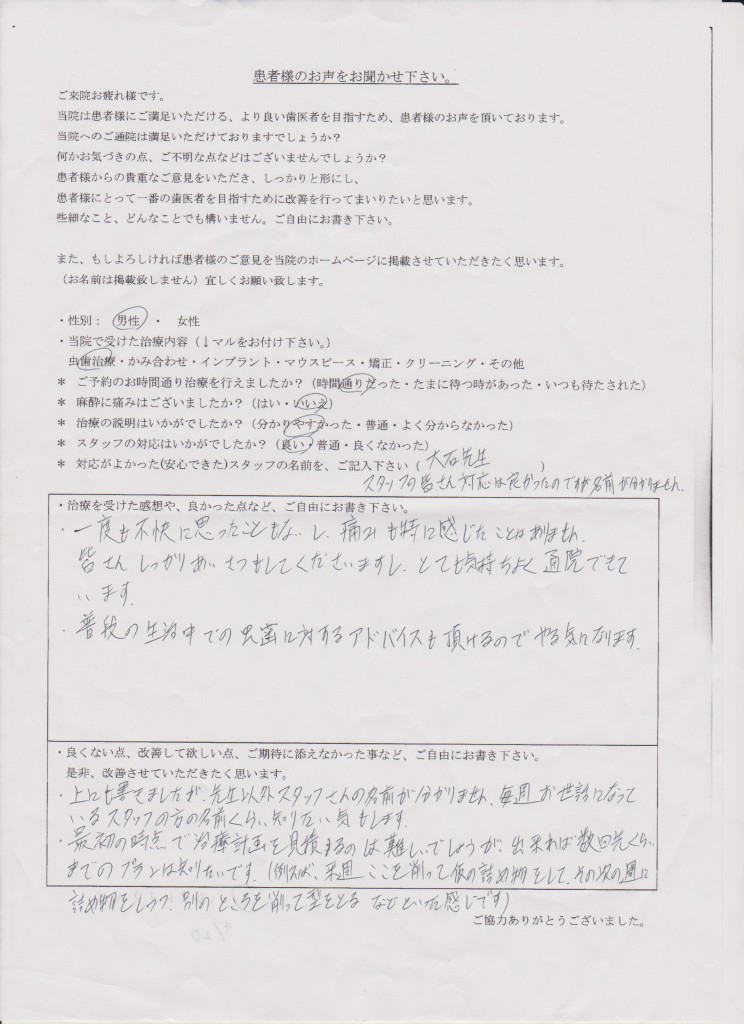 患者様のお声をお聞かせ下さい。
ご来院お疲れ様です。
当院は患者様にご満足いただける、より良い歯医者を目指すため、患者様のお声を頂いております。
当院へのご通院は満足いただけておりますでしょうか？
何かお気づきの点、ご不明な点などはございませんでしょうか？
患者様からの貴重なご意見をいただき、しっかりと形にし、
患者様にとって一番の歯医者を目指すために改善を行ってまいりたいと思います。
些細なこと、どんなことでも構いません。ご自由にお書き下さい。
また、もしよろしければ患者様のご意見を当院のホームページに掲載させていただきたく思います。
（お名前は掲載致しません）宜しくお願い致します。
・性別： 男性 ・ 女性
・当院で受けた治療内容（↓マルをお付け下さい。）
虫歯治療・かみ合わせ・インプラント・マウスピース・矯正・クリーニング・その他
＊ ご予約のお時間通り治療を行えましたか？（時間通りだった・たまに待つ時があった・いつも待たされた）
＊ 麻酔に痛みはございましたか？（はい・いいえ）
＊ 治療の説明はいかがでしたか？（分かりやすかった・普通・よく分からなかった）
＊ スタッフの対応はいかがでしたか？（良い・普通・良くなかった）
＊ 対応がよかった(安心できた)スタッフの名前を、ご記入下さい（ 大石先生 ）
スタッフの皆さん対応は良かったのですが名前が分かりません。
・治療を受けた感想や、良かった点など、ご自由にお書き下さい。
・一度も不快に思ったこともないし、痛みも特に感じたことはありません。
皆さんしっかりあいさつもしてくださいますし、とても気持ちよく通院できて
います。
・普段の生活中での虫歯に対するアドバイスも頂けるのでやる気になります。
・良くない点、改善して欲しい点、ご期待に添えなかった事など、ご自由にお書き下さい。
是非、改善させていただきたく思います。
・上にも書きましたが、先生以外スタッフさんの名前が分かりません、毎週お世話になって
いるスタッフの方の名前くらい知りたい気もします。
・最初の時点で治療計画を見積するのは難しいでしょうが、出来れば数回先くらい
までのプランは知りたいです。（例えば、来週ここを削って仮の詰め物をして、その次の週に
詰め物をしつつ、別のところを削って型をとるなどといった感じです）
ご協力ありがとうございました。